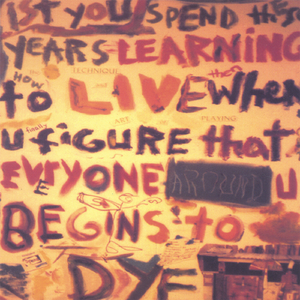 1st YOU SPEND thes
YEARS LEARNING
HOW TECHNIQUE then
to LIVE when
ART PLAYING
finally
u figure that
EVERYONE AROUND u
BEGINS to
DYE